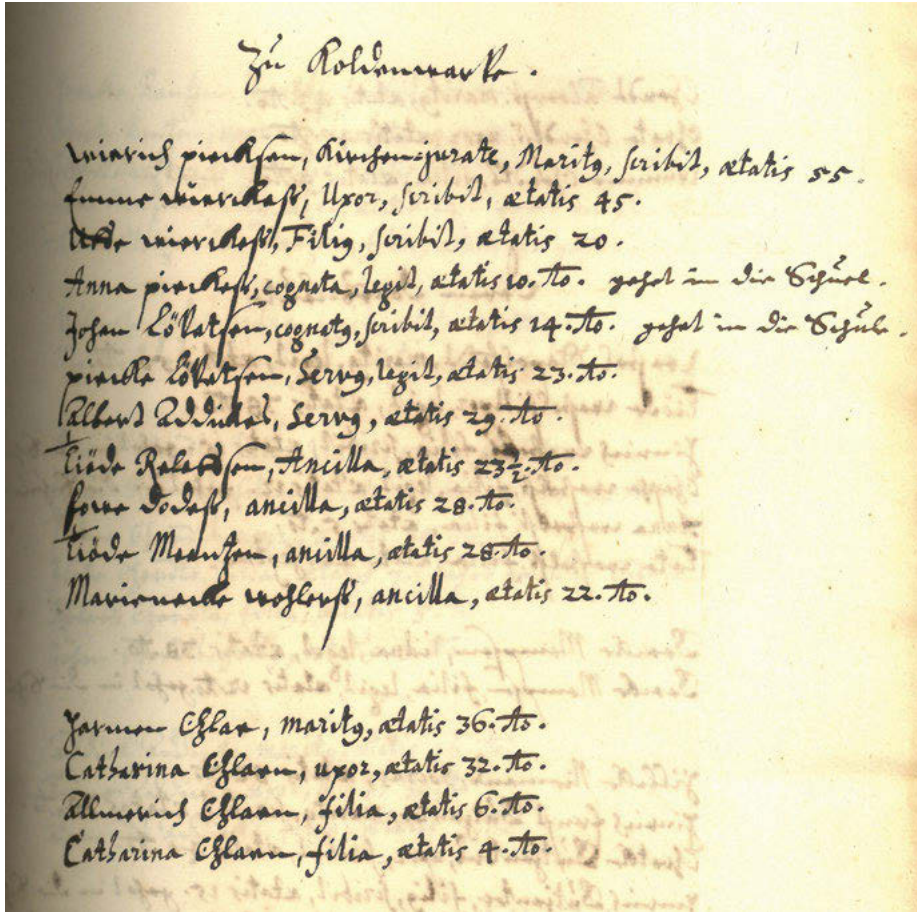 Zu Koldenwarfe.
Winrich pieckßen, Kirchen=jurate, Maritꝰ, scribit, ætatis 55.
Emme wierckeß, Uxor, scribit, ætatis 45.
wierckeß, Filiꝰ, scribit, ætatis 20.
Anna pieckeß, cognata, legit, ætatis 10. Ao. gehet in die Schuel.
Johan Löketsen, cognatꝰ, scribit, ætatis 14. Ao. gehet in die Schule.
pieckke Löketsen, Servꝰ, legit, ætatis 23. Ao.
Albert Addickes, Servꝰ, ætatis 29. Ao.
Tiöde Ancilla, ætatis 23½. Ao.
dodeß, ancilla, ætatis 28. Ao.
Tiöde ancilla, ætatis 28. Ao.
Marienecke wohlerß, ancilla, ætatis 22. Ao.
Harmen Ehlar, maritꝰ, ætatis 36. Ao.
Catharina Ehlarn, uxor, ætatis 32. Ao.
Allmerich Ehlarn, filia, ætatis 6. Ao.
Catharina Ehlarn, filia, ætatis 4. Ao.